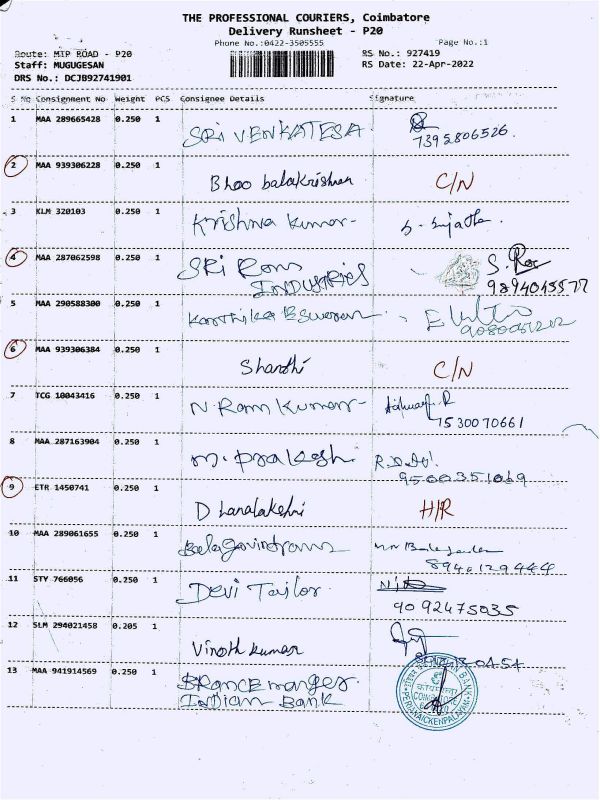 THE PROFESSIONAL COURIERS, Coimbatore
Delivery Runsheet - P20
Phone No.:0422-3505555 Page No.:1
Route: MTP ROAD - P20 RS No.: 927419
Staff: MUGUGESAN RS Date: 22-Apr-2022
DRS No.: DCJB92741901
S No Consignment No Weight PCS Consignee Details Signature
1 MAA 289665428 0.250 1 SRI VENKATESA
7395806526
2 MAA 939306228 0.250 1 Bhoo balakrishnan C/N
3 KLM 320103 0.250 1 Krishna kumar- S. Sujatha
4 MAA 287062598 0.250 1 SRI Rom INDUSTRIES S.
9894013577
5 MAA 290588300 0.250 1 Karthika Eswaran
6 MAA 939306384 0.250 1 Shanthi C/N
7 TCG 10043416 0.250 1 N. Ram Kumar-
7530070661
8 MAA 287163904 0.250 1 M. Prakash
9500351069
9 ETR 1450741 0.250 1 Dhanalakshmi H/R
10 MAA 289061655 0.250 1 Balagovindram
11 STY 766056 0.250 1 Devi Tailor
9092475035
12 SLM 294021458 0.205 1 Vinoth kumar
13 MAA 941914569 0.250 1 BRANCE manger
INDIAN BANK
PERIANAICKENPALAYAM